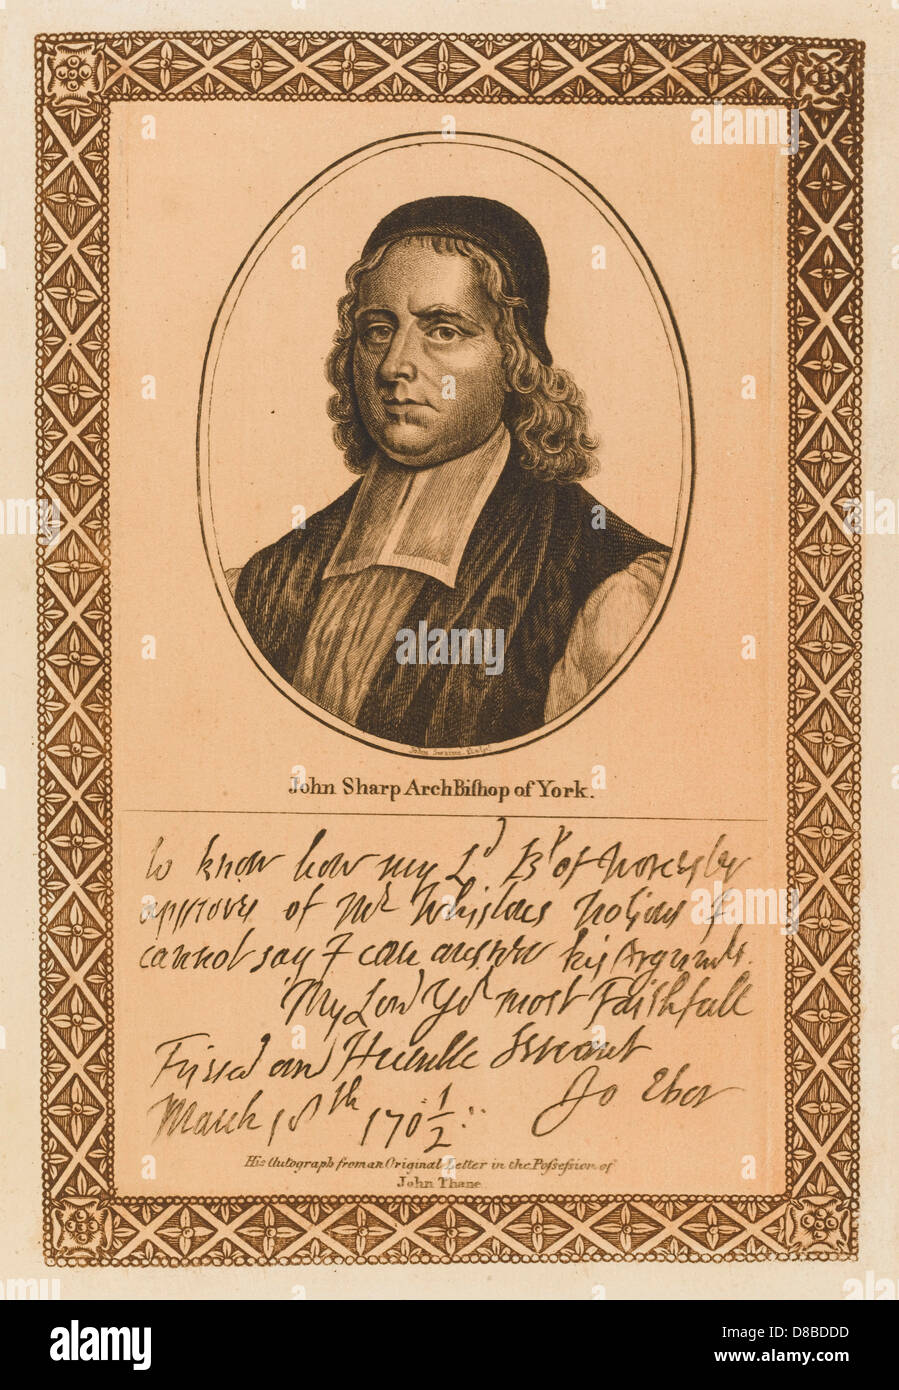 John Swaine Sculpt.
John Sharp ArchBishop of York.
to know how my Ld Bp of Worcester
approves of Mr Whistons Notions I
cannot say I can answer his Argumts.
My Lord Yor most Faithfull
Friend and Humble Servant
March 18th 170 1/2 :: Jo Ebor
His Autograph from an Original Letter in the Possession of
John Thane.
a alamy stock photo
alamy
Image ID: D8BDDD
www.alamy.com